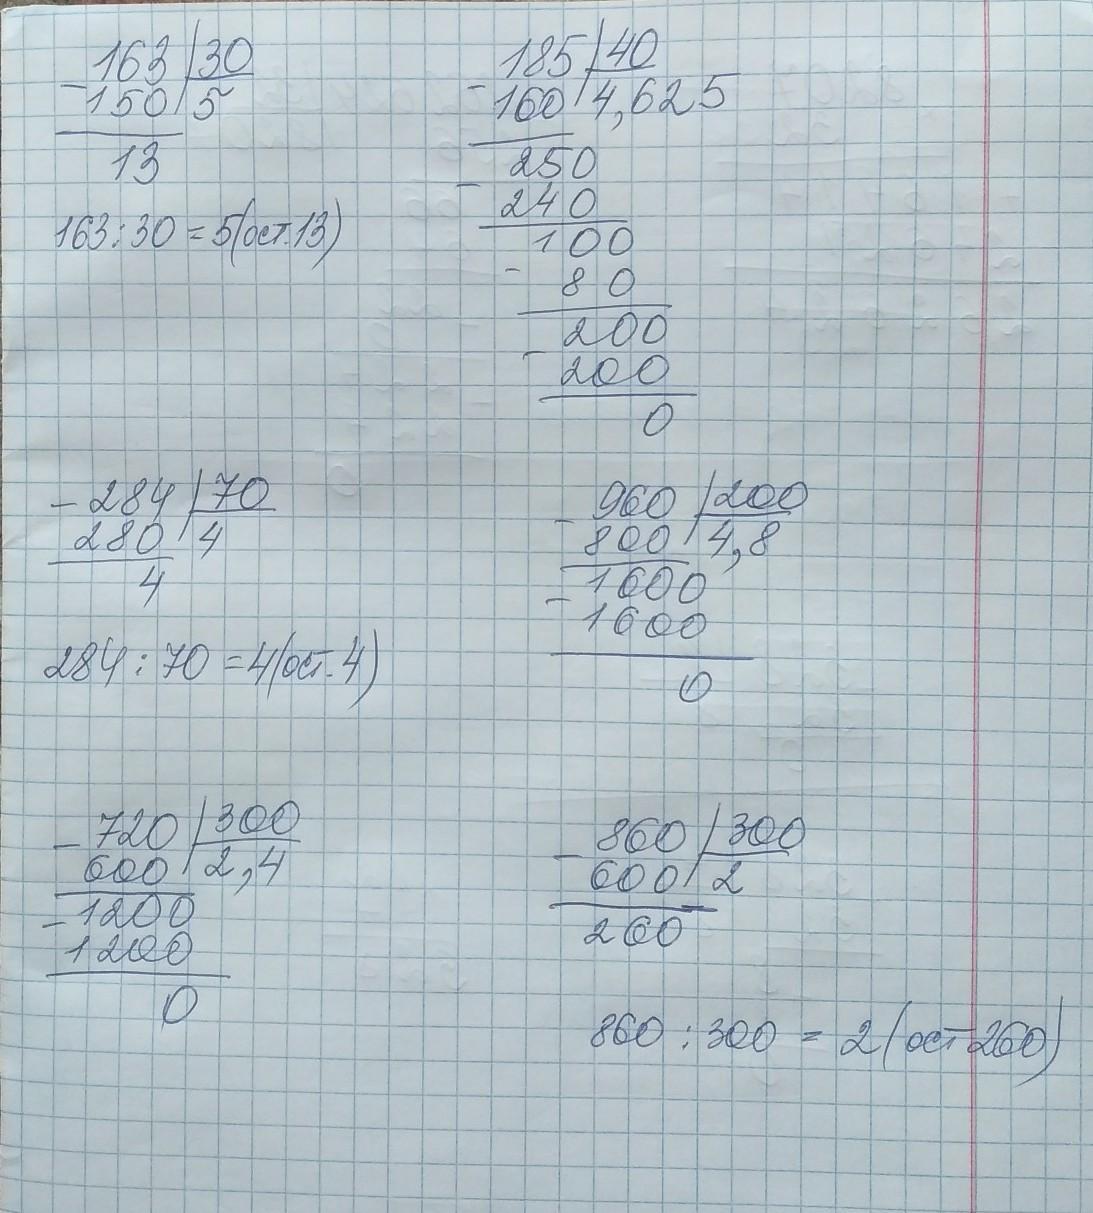 163 30
- 150 5
13
163:30 = 5(ост.13)
185 40
- 160 4,625
250
- 240
100
- 80
200
- 200
0
- 284 70
280 4
4
284 : 70 = 4(ост. 4)
960 200
- 800 4,8
1600
- 1600
0
- 720 300
600 2,4
- 1200
1200
0
860 300
- 600 2
260
860 : 300 = 2(ост 260)